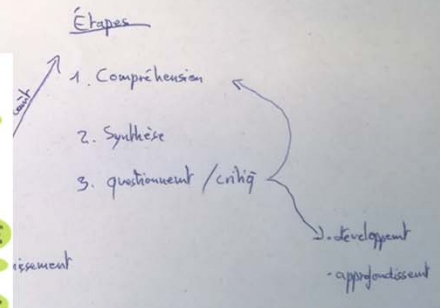 Étapes
1. Compréhension
2. Synthèse
3. questionnemt / critiq̄
- développemt
- approfondissemt
issement